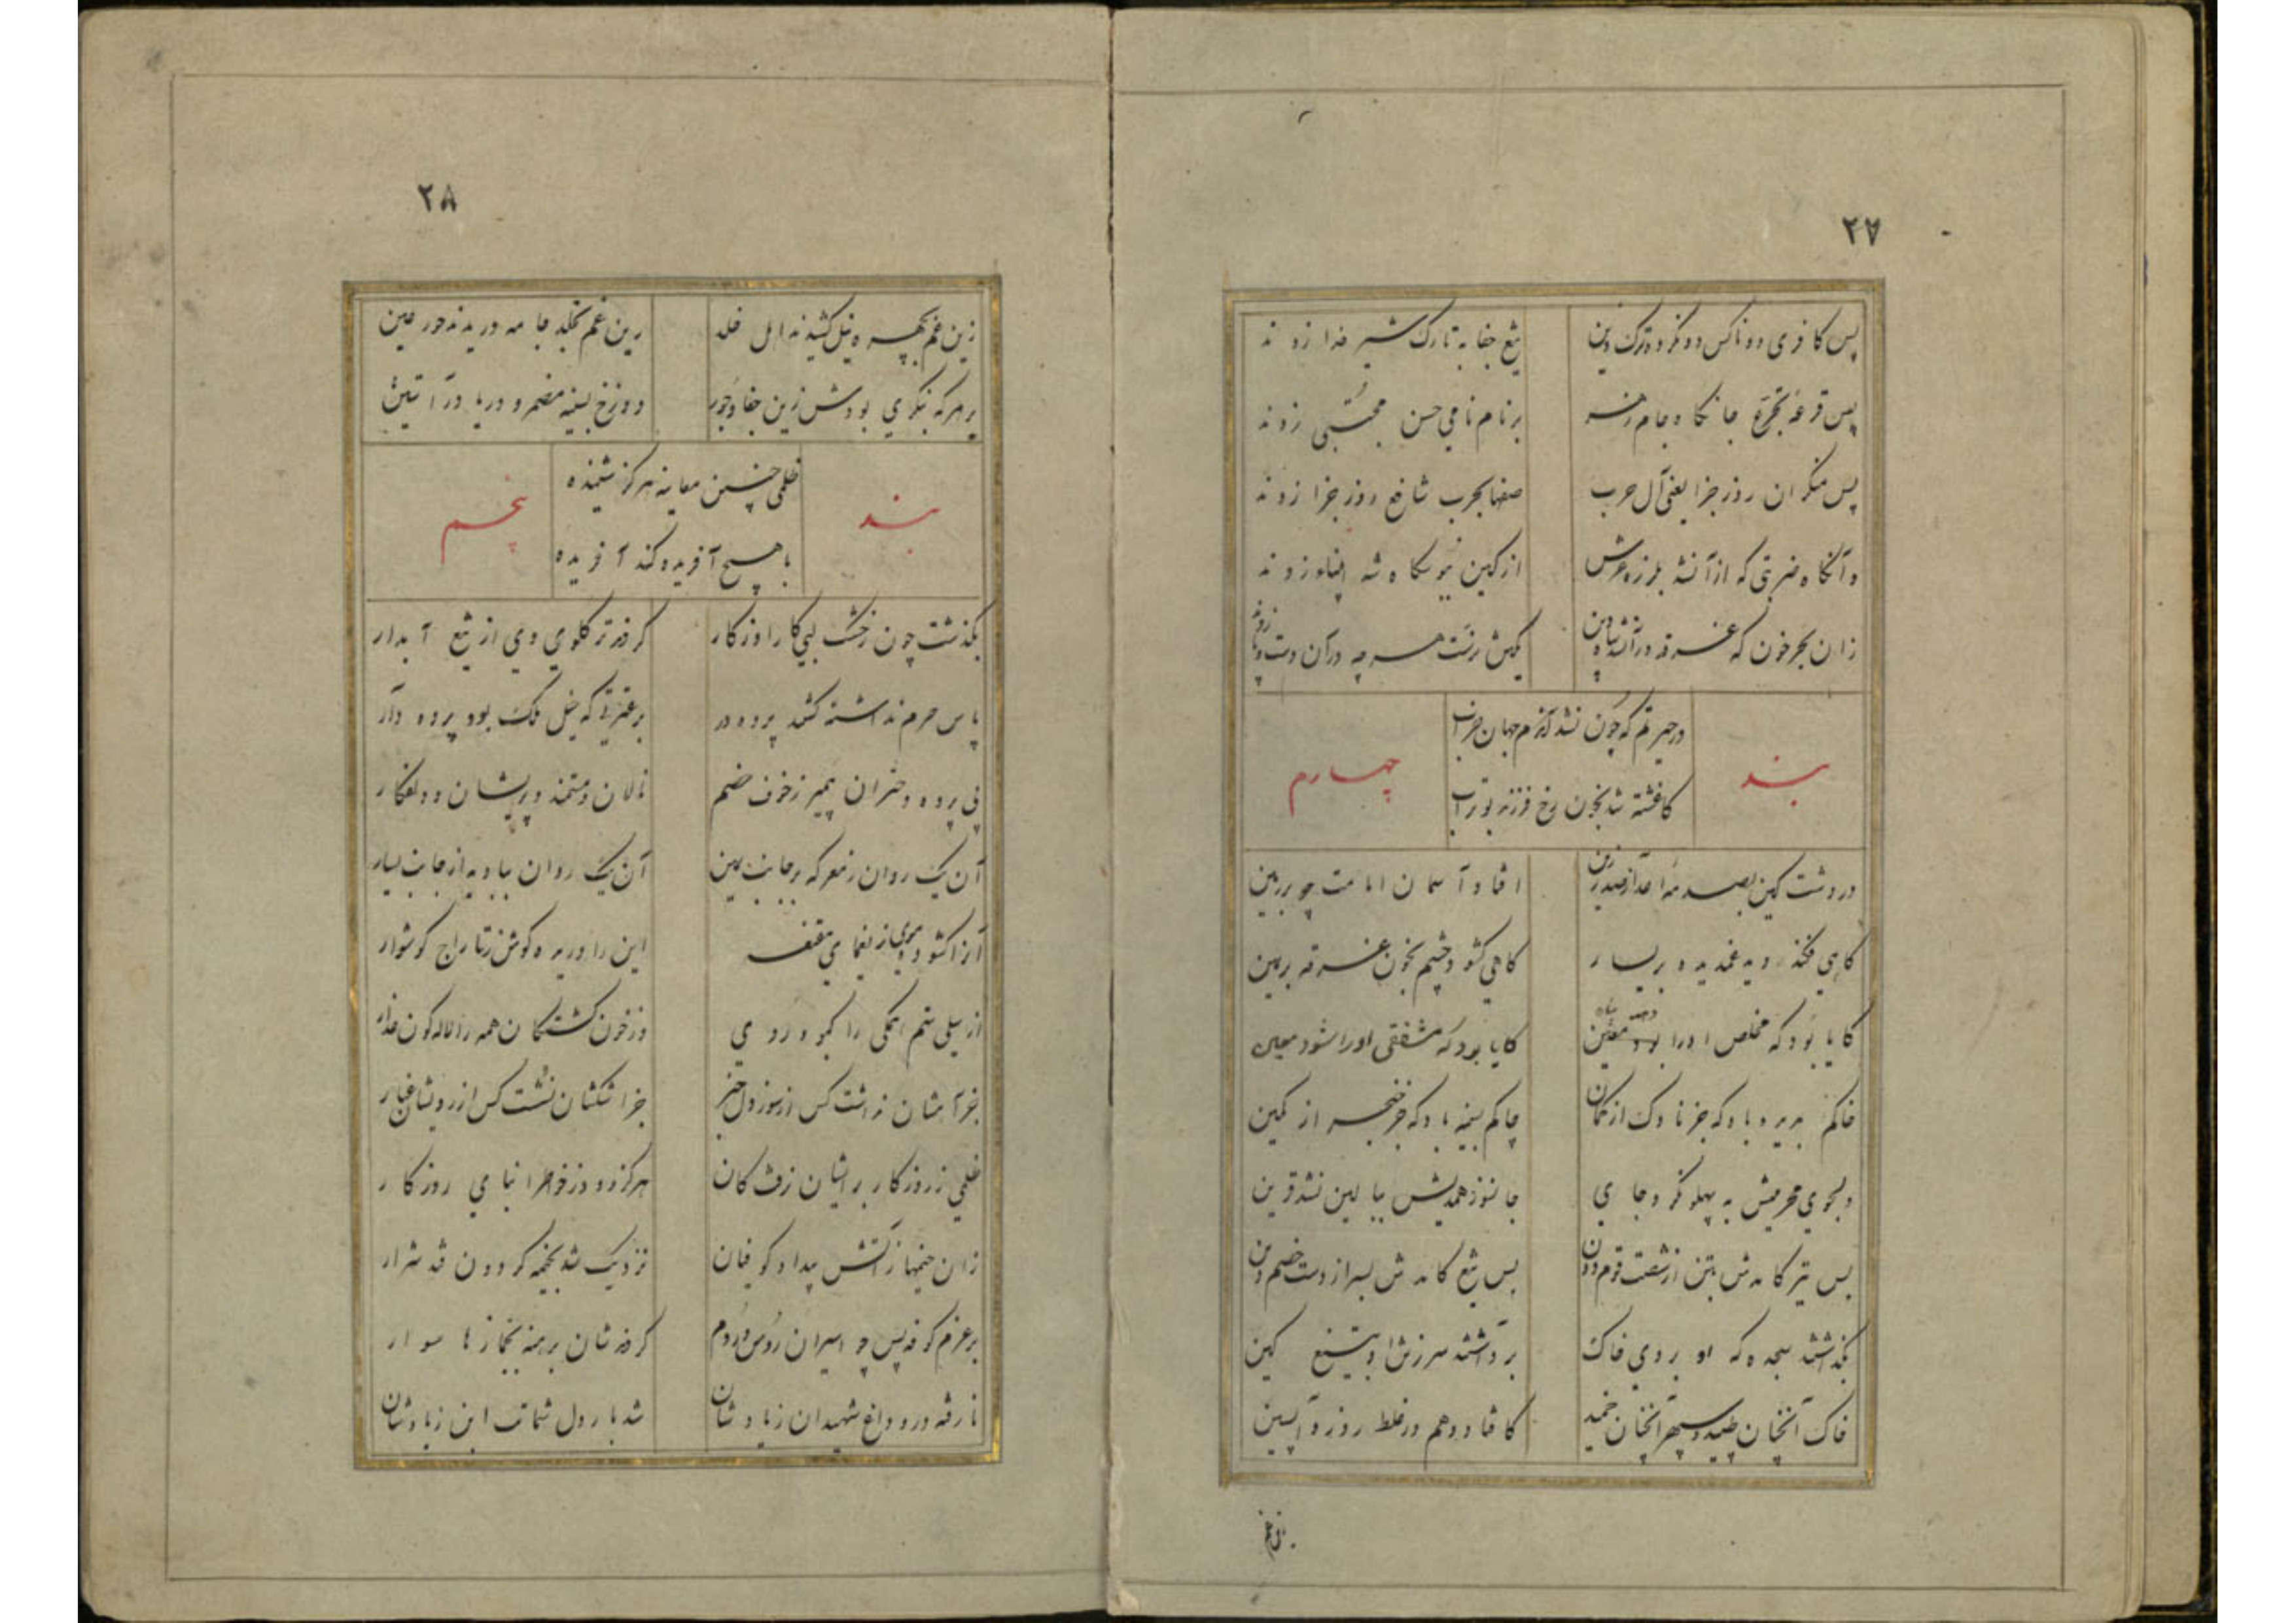 ۲۷
پس کافری دو ناکس دون کرد و ترک دین تیغ جفا به تارک شیر خدا زدند
پس قرعه تجرع جانکاه جام زهر بر نام نامی حسن مجتبی زدند
پس منکران روز جزا یعنی آل حرب صفها بحرب شافع روز جزا زدند
وآنگاه ضربتی که از آن شد بلرزه عرش از کین
زان بحر خون که غرقه در آن شد
بند
در حیرتم که چون نشد آندم جهان خراب
کاغشته شد بخون رخ فرزند بوتراب
چهارم
در دشت کین بصدمه اعدا ز صدر زین افتاد آسمان امامت چو بر زمین
گاهی فکند دیده غمدیده بر یسار گاهی گشود چشم بخون غرقه بر یمین
کایا بود که مخلص او را معین کایا بود که مشفقی او را شود معین
خاکم بدیده باد که جز ناوک از کمان چاکم بسینه باد که جز خنجر از کمین
دلجوی محرمیش به پهلو نکرد جای جانسوز همدمیش ببالین نشد قرین
بس تیر کامدش بتن از شصت قوم دون بس تیغ کامدش بسر از دست خصم دین
نگذاشتند سجده که او بروی خاک برداشتند سر ز تن او بتیغ کین
خاک آنچنان طپید و سپهر آنچنان خمید کافتاد وهم در غلط روز واپسین
زین غم
۲۸
زین غم بچهره نیل کشیدند اهل خلد زین غم بخلد جامه دریدند حور عین
بر هر که بنگری بودش زین جفا و جور دوزخ بسینه مضمر و دریا در آستین
بند
ظلمی چنین معاینه هرگز شنیده
با هیچ آفریده کند آفریده
پنجم
بگذشت چون ز خشک لبی کار او ز کار کردند تر گلوی وی از تیغ آبدار
پاس حرم نداشته گشتند پرده در بر عترتی که خیل ملک بود پرده دار
بی پرده دختران پیمبر ز خوف خصم نالان و مستمند و پریشان و دلفکار
آن یک روان ز معرکه بر جانب یمین آن یک روان ببادیه از جانب یسار
آنرا گشوده موی ز یغمای مقنعه این را دریده گوش ز تاراج گوشوار
از سیلی ستم همگی را کبود روی وز خون کشتگان همه را لاله گون عذار
جز آهشان نداشت کس از سوز دل خبر جز اشکشان نشست کس از رویشان غبار
ظلمی ز روزگار بر ایشان رفت کان هرگز نبود در خور ابنای روزگار
زان خیمها ز آتش بیداد کوفیان نزدیک شد بخیمه گردون فتد شرار
بر عزم کوفه پس چو اسیران روس و روم کردندشان برهنه بجمازها سوار
نارفته درد داغ شهیدان ز یادشان شد بار دل شماتت ابن زیادشان